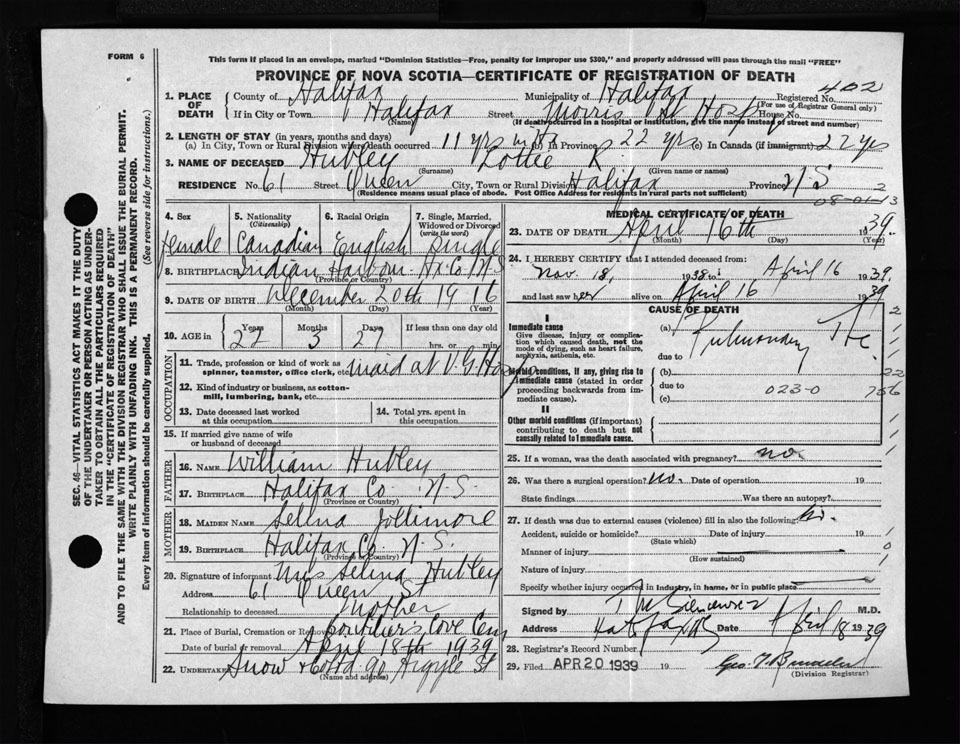 FORM 6
This form if placed in an envelope, marked "Dominion Statistics—Free, penalty for improper use $300," and properly addressed will pass through the mail "FREE"
PROVINCE OF NOVA SCOTIA—CERTIFICATE OF REGISTRATION OF DEATH
1. PLACE OF DEATH County of Halifax Municipality of Halifax Registered No. 402
(For use of Registrar General only)
If in City or Town Halifax Street Morris Hosp House No.
(Name) (If death occurred in a hospital or institution, give the name instead of street and number)
2. LENGTH OF STAY (in years, months and days)
(a) In City, Town or Rural Division where death occurred 11 yrs (b) In Province 22 yrs (c) In Canada (if immigrant) 22 yrs
3. NAME OF DECEASED Hubley Lottie R.
(Surname) (Given name or names)
RESIDENCE No. 61 Street Queen City, Town or Rural Division Halifax Province N.S. 2
(Residence means usual place of abode. Post Office Address for residents in rural parts not sufficient)
08-01-13
SEC. 46—VITAL STATISTICS ACT MAKES IT THE DUTY OF THE UNDERTAKER OR PERSON ACTING AS UNDERTAKER TO OBTAIN ALL THE PARTICULARS REQUIRED IN THE "CERTIFICATE OF REGISTRATION OF DEATH"
AND TO FILE THE SAME WITH THE DIVISION REGISTRAR WHO SHALL ISSUE THE BURIAL PERMIT.
WRITE PLAINLY WITH UNFADING INK. THIS IS A PERMANENT RECORD.
Every item of information should be carefully supplied. (See reverse side for instructions.)
4. Sex female
5. Nationality (Citizenship) Canadian
6. Racial Origin English
7. Single, Married, Widowed or Divorced (write the word) Single
8. BIRTHPLACE Indian Harbour Hx. Co. N.S.
(Province or Country)
9. DATE OF BIRTH December 20th 1916
(Month) (Day) (Year)
10. AGE in Years 22 Months 3 Days 27 If less than one day old hrs. or min.
OCCUPATION
11. Trade, profession or kind of work as spinner, teamster, office clerk, etc. maid at V.G. Hosp
12. Kind of industry or business, as cotton-mill, lumbering, bank, etc.
13. Date deceased last worked at this occupation
14. Total yrs. spent in this occupation
15. If married give name of wife or husband of deceased
FATHER
16. NAME William Hubley
17. BIRTHPLACE Halifax Co. N.S.
(Province or Country)
MOTHER
18. MAIDEN NAME Selina Jollimore
19. BIRTHPLACE Halifax Co. N.S.
(Province or Country)
20. Signature of informant Mrs Selina Hubley
Address 61 Queen St
Relationship to deceased Mother
21. Place of Burial, Cremation or Removal Boutiliers Cove Cem
Date of burial or removal April 18th 1939
22. UNDERTAKER Snow & Co Ltd. 90 Argyle St
(Name and address)
MEDICAL CERTIFICATE OF DEATH
23. DATE OF DEATH April 16th 1939
(Month) (Day) (Year)
24. I HEREBY CERTIFY that I attended deceased from:
Nov. 18, 1938 to April 16 1939
and last saw her alive on April 16 1939
CAUSE OF DEATH
I
Immediate cause
Give disease, injury or complication which caused death, not the mode of dying, such as heart failure, asphyxia, asthenia, etc.
(a) Pulmonary Tbc.
due to
Morbid conditions, if any, giving rise to immediate cause (stated in order proceeding backwards from immediate cause).
(b) 22
due to 023-0 756
(c)
II
Other morbid conditions (if important) contributing to death but not causally related to immediate cause.
25. If a woman, was the death associated with pregnancy? no.
26. Was there a surgical operation? no. Date of operation 19
State findings Was there an autopsy?
27. If death was due to external causes (violence) fill in also the following:
Accident, suicide or homicide? Date of injury 19
(State which)
Manner of injury
(How sustained)
Nature of injury
Specify whether injury occurred in industry, in home, or in public place
Signed by M.D.
Address Halifax NS Date April 18 1939
28. Registrar's Record Number
29. Filed APR 20 1939 19
(Division Registrar)